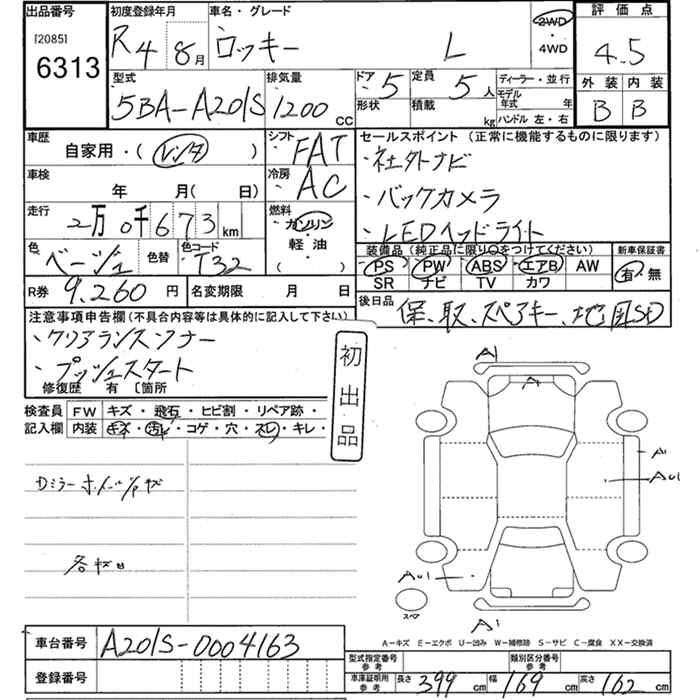 出品番号 初度登録年月 車名・グレード 評価点
[2085] 6313 R4 8月 ロッキー L 2WD ・4WD 4.5
型式 排気量 ドア 5 定員 5人 ディーラー・並行 外装 内装
5BA-A201S 1200cc 形状 積載 kg モデル年式 年 ハンドル 左・右 B B
車歴 自家用・(レンタ) シフト FAT セールスポイント (正常に機能するものに限ります)
・社外ナビ
車検 年 月(日) 冷房 AC ・バックカメラ
走行 2万0千673km 燃料 ガソリン 軽・油 ( ) ・LEDヘッドライト
色 ベージュ 色替 色コード T32 装備品 (純正品に限り○をつけてください) 新車保証書
PS PW ABS エアB AW 有・無
SR ナビ TV カワ
R券 9,260円 名変期限 月 日 後日品 保、取、スペアキー、地図SD
注意事項申告欄(不具合内容等は具体的に記入して下さい)
・クリアランスソナー
・プッシュスタート
修復歴 有 〔箇所
初出品
検査員 FW キズ・飛石・ヒビ割・リペア跡・
記入欄 内装 キズ・汚レ・コゲ・穴・スレ・キレ・
A1
A
A1
A001
Dミラー
各
A01
スペア
A1
A-キズ E-エクボ U-凹み W-補修跡 S-サビ C-腐食 XX-交換済
車台番号 A201S-0004163
登録番号
型式指定番号 参考 類別区分番号 参考
車庫証明用 参考 長さ 399cm 幅 169cm 高さ 162cm